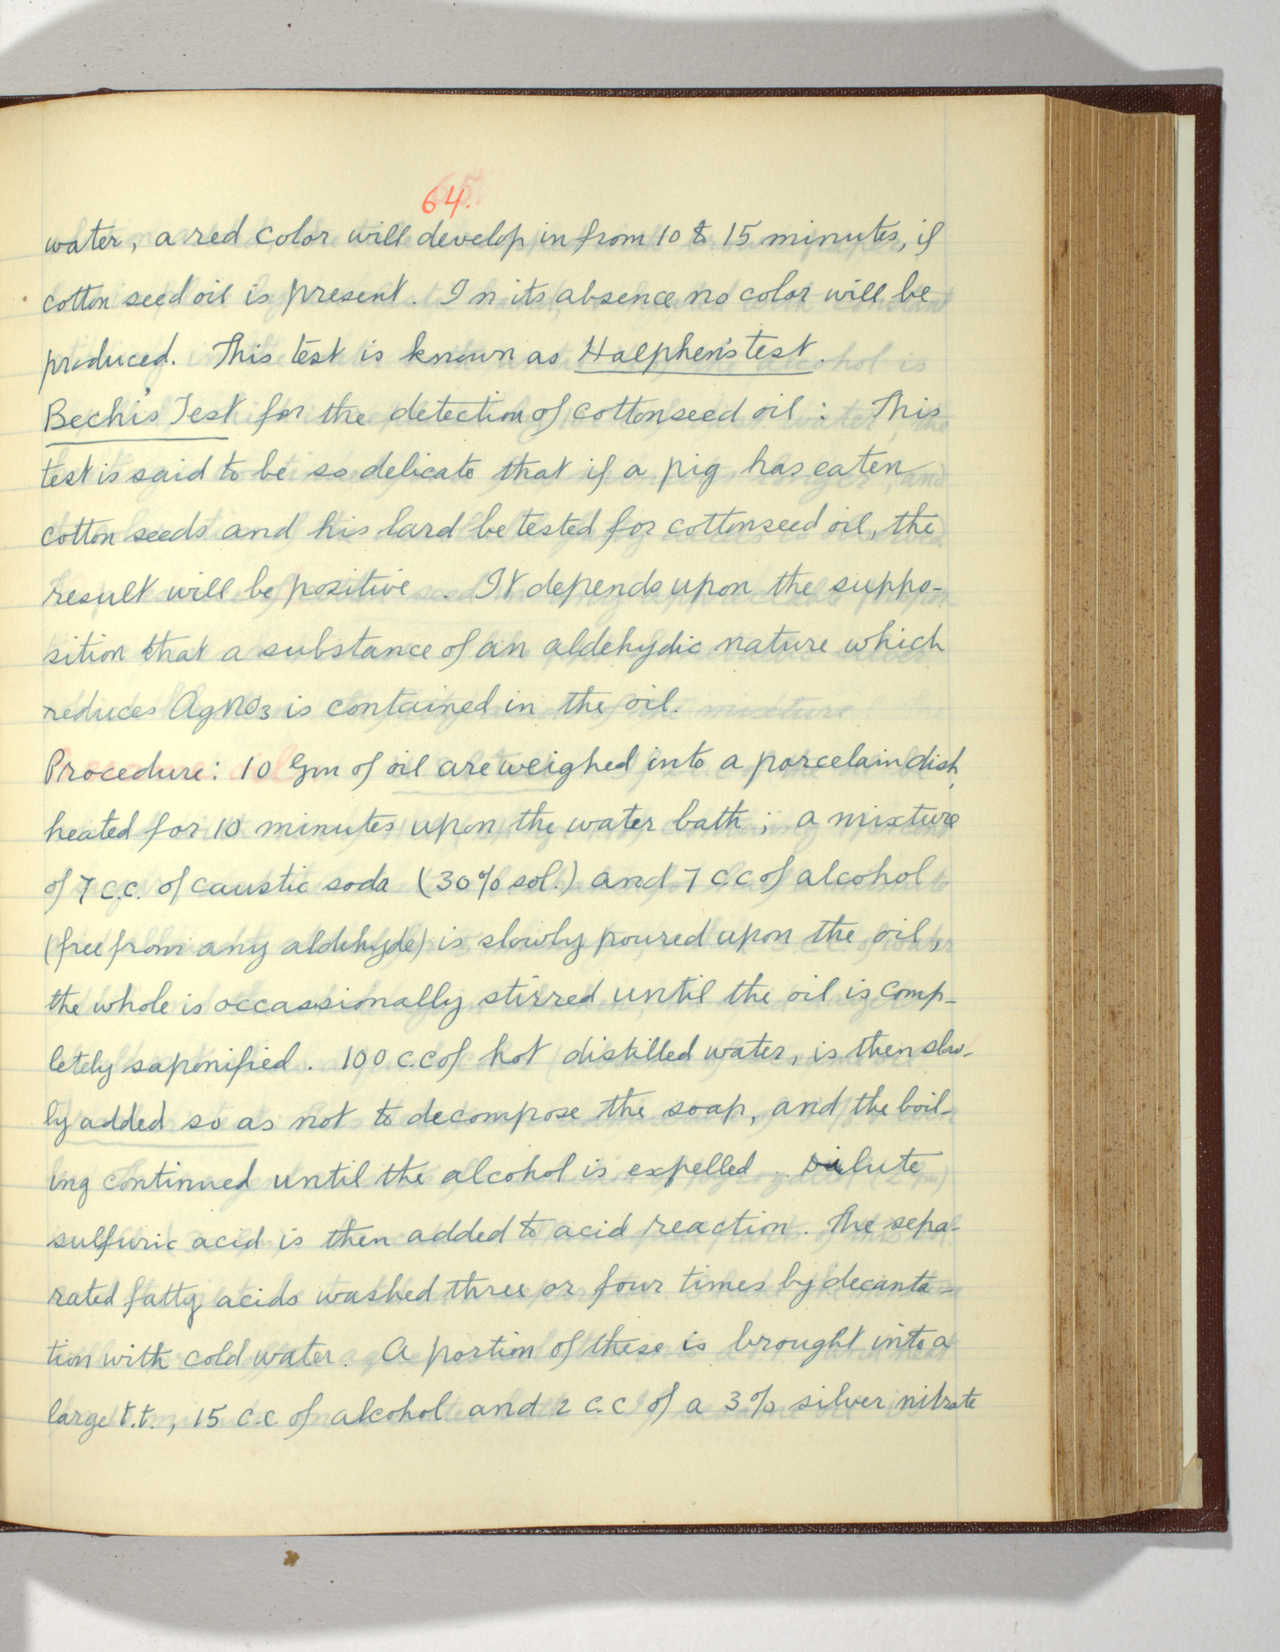 64.
water, a red color will develop in from 10 to 15 minutes, if
cotton seed oil is present. In its absence no color will be
produced. This test is known as Halphen's test.
Bechi's Test for the detection of cottonseed oil: This
test is said to be so delicate that if a pig has eaten
cotton seeds and his lard be tested for cottonseed oil, the
result will be positive. It depends upon the suppo-
sition that a substance of an aldehydic nature which
reduces AgNO3 is contained in the oil.
Procedure: 10 Gm of oil are weighed into a porcelain dish,
heated for 10 minutes upon the water bath; a mixture
of 7 c.c. of caustic soda (30% sol.) and 7 c.c of alcohol
(free from any aldehyde) is slowly poured upon the oil,
the whole is occassionally stirred until the oil is comp-
letely saponified. 100 c.c of hot distilled water, is then slow-
ly added so as not to decompose the soap, and the boil-
ing continued until the alcohol is expelled. Dilute
sulfuric acid is then added to acid reaction. The sepa-
rated fatty acids washed three or four times by decanta-
tion with cold water. A portion of these is brought into a
large t.t., 15 c.c of alcohol and 2 c.c of a 3% silver nitrate